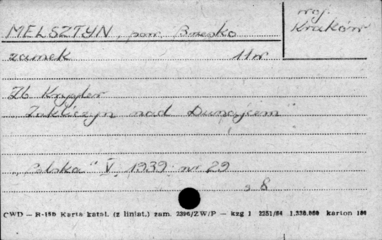 MELSZTYN, pow. Brzesko
woj. Kraków
zamek 11 w
Zb Krygler
Zakliczyn nad Dunajcem
"Polska" V. 1939 nr 29
s 8
CWD — R-150 Karta katal. (z liniat.) zam. 2396/Z/W/P — kzg 1 2251/84 1.330.000 karton 180